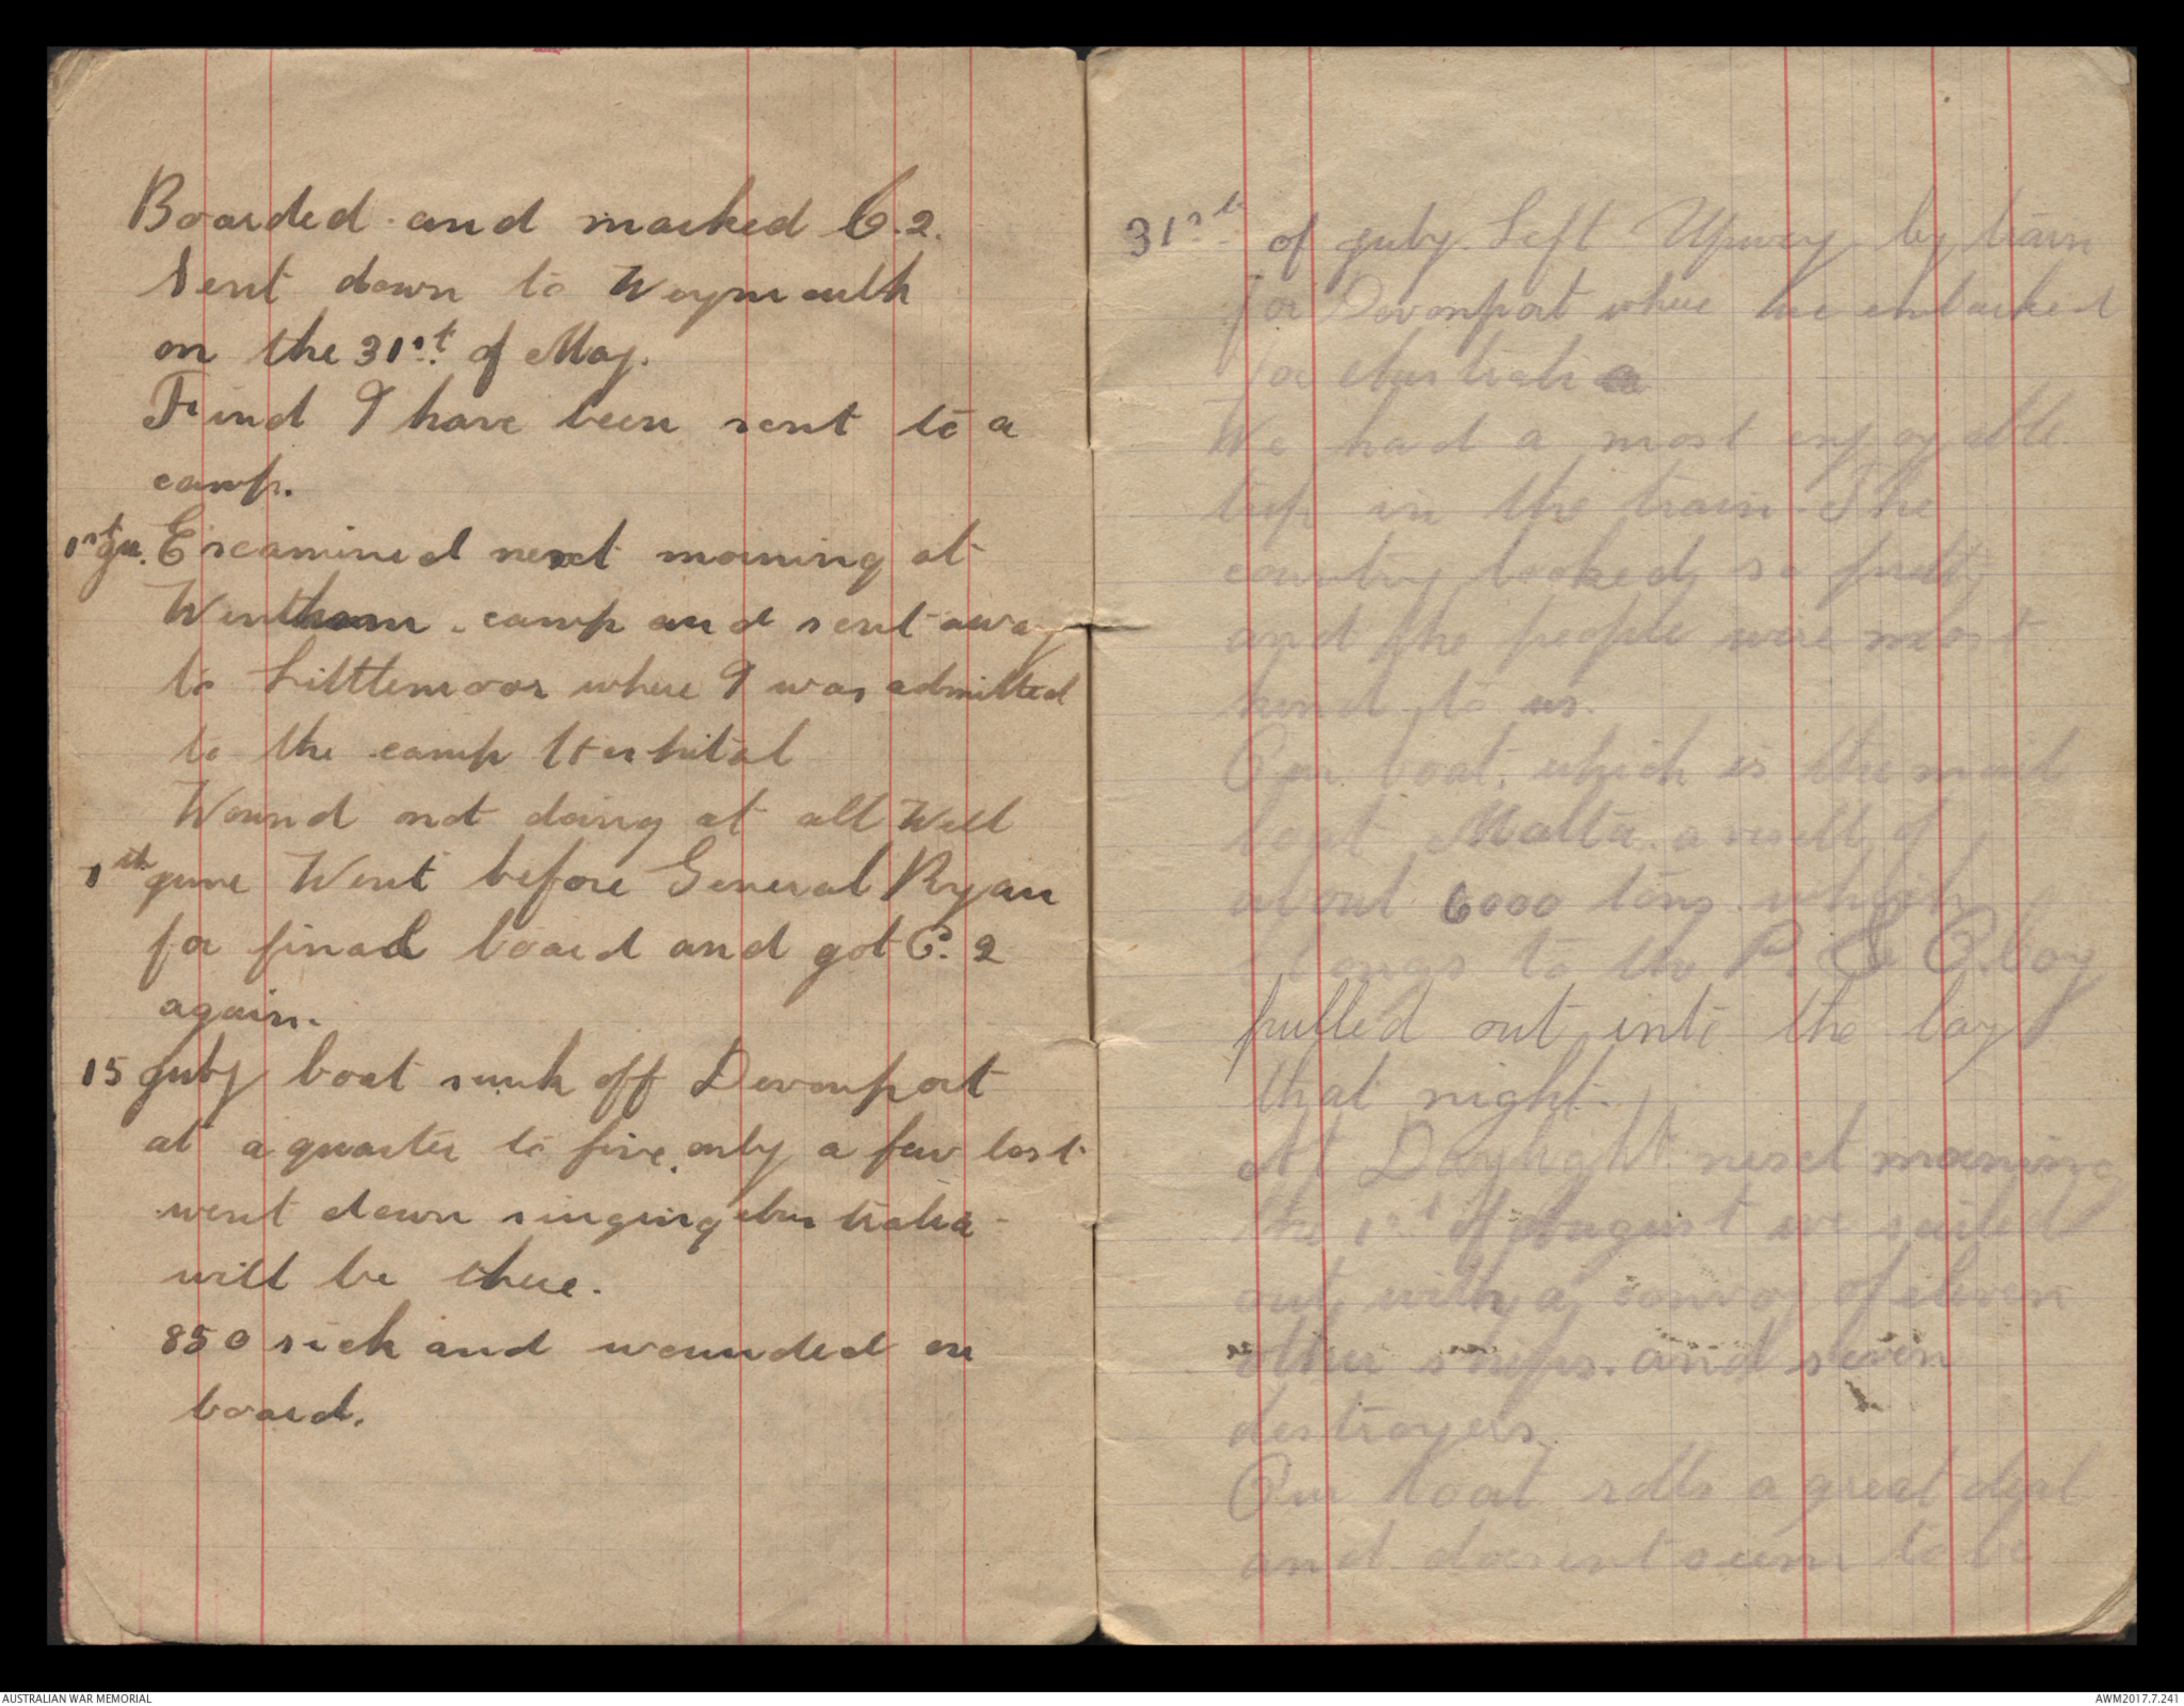 Boarded and marked C.2.
Sent down to Weymouth
on the 31st of May.
Find I have been sent to a
camp.
1st Ju. Examined next morning at
camp and sent away
to Littlemoor where I was admitted
to the camp Hospital
Wound not doing at all Well
1th June Went before General Ryan
for final board and got C. 2
again.
15 July boat sunk off Devonport
at a quarter to five, only a few lost
went down singing Australia
will be there.
850 sick and wounded on
board.
31st of July. Left Upwey by train
for Devonport where we embarked
for Australia
We had a most enjoyable
trip in the train. The
country looked so pretty
and the people were most
kind to us.
Our boat, which is the mail
boat Malta. a vessel of
about 6000 tons which
belongs to the P. & O. Coy
pulled out into the bay
that night.
At Daylight next morning
the 1st of August we sailed
out with a convoy of eleven
other ships. and seven
destroyers.
Our boat rolls a great deal
and doesent seem to be
AUSTRALIAN WAR MEMORIAL
AWM2017.7.241